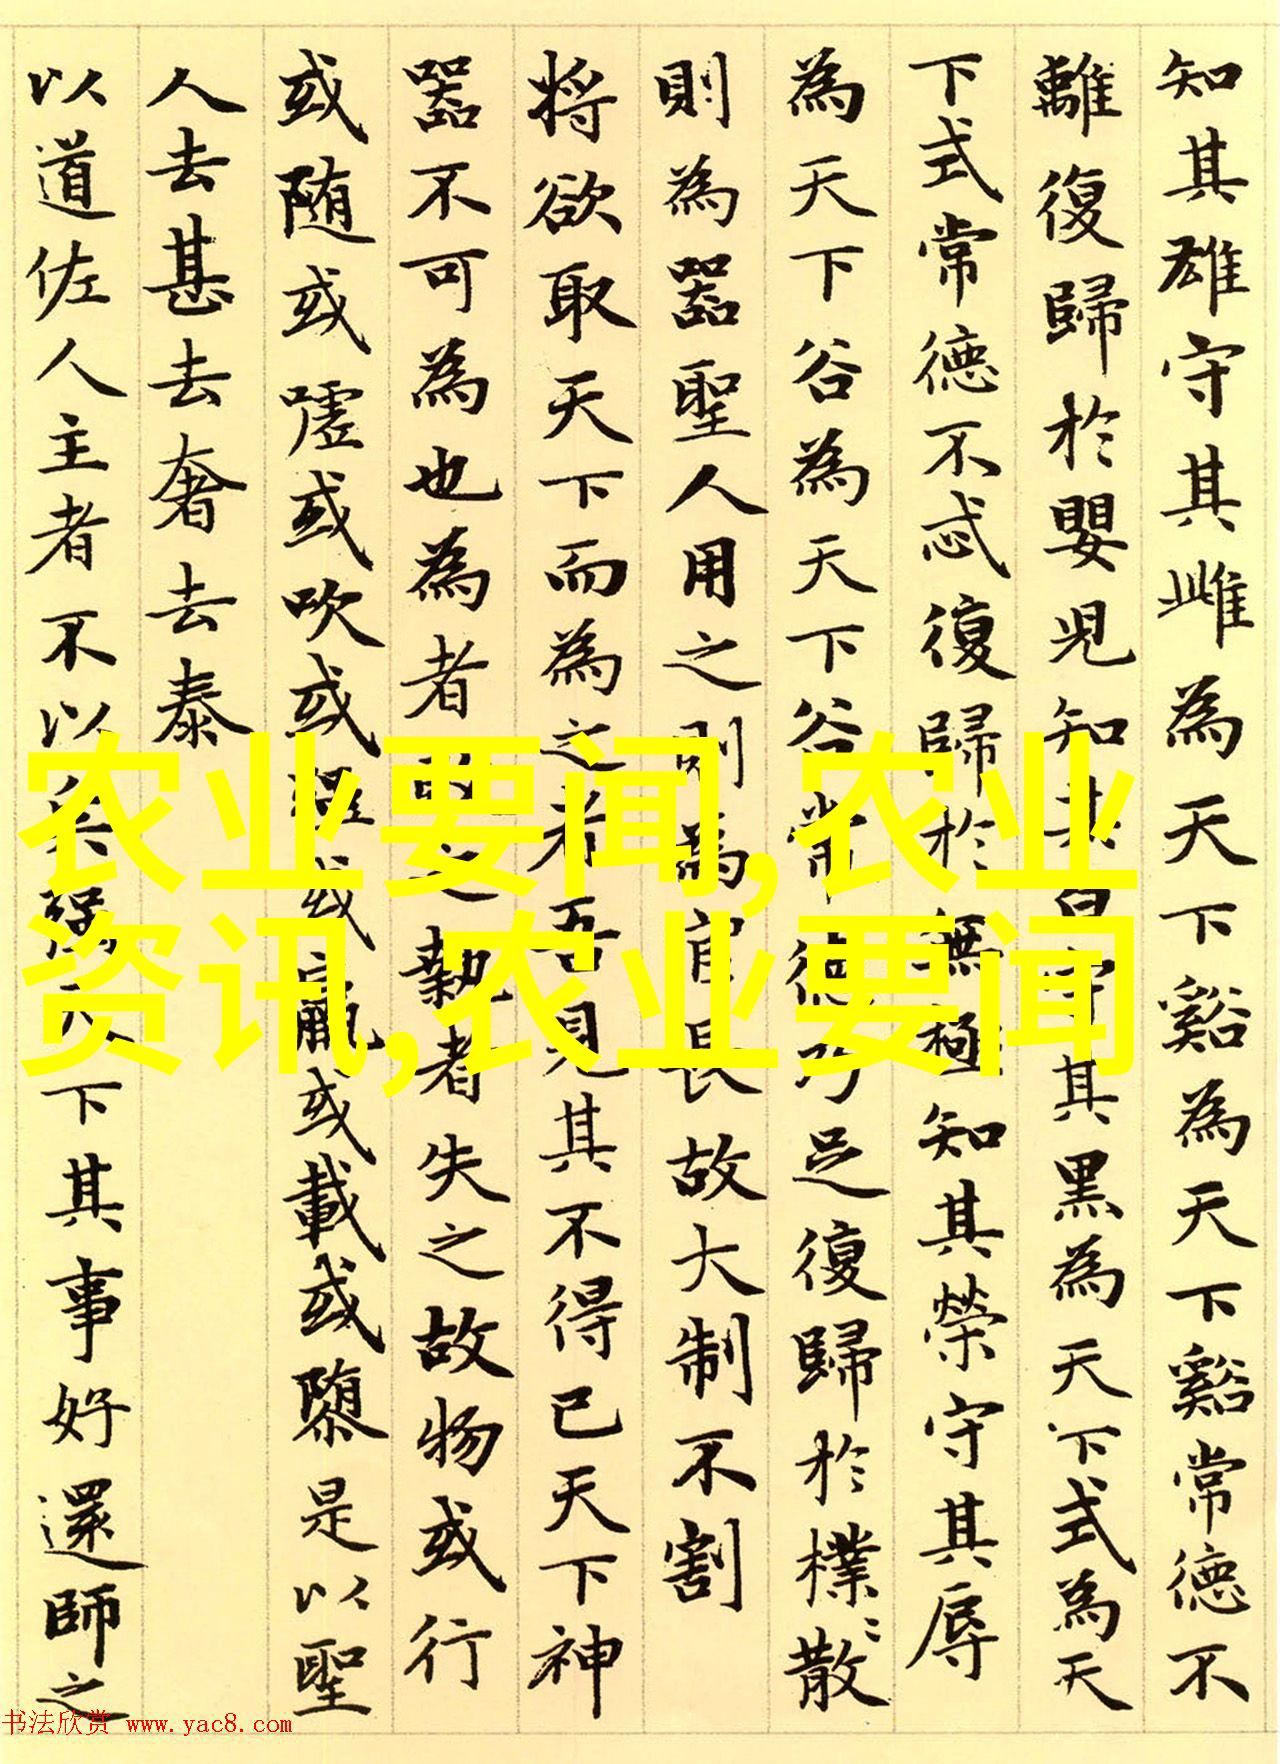 知其雄守其雌為天下谿為天下谿常德不
離復歸於嬰兒知其白守其黑為天下式為天
下式常德不忒復歸於無極知其榮守其辱
為天下谷為天下谷常德乃足復歸於樸〻散
則為器聖人用之則為官長故大制不割
将欲取天下而為之者吾見其不得已天下神
器不可為也為者敗之執者失之故物或行
或随或噓或吹或强或羸或載或隳是以聖
人去甚去奢去泰
以道佐人主者不以兵强天下其事好還師之
农业要闻,农业
资讯,农业要闻
书法欣赏 www.yac8.com